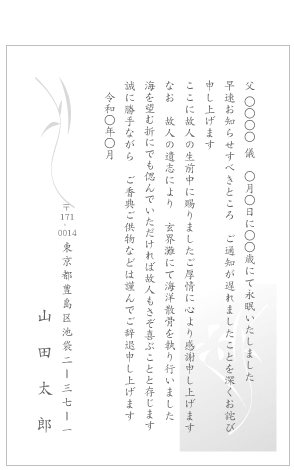 父 〇〇〇〇 儀 〇月〇日に〇〇歳にて永眠いたしました
早速お知らせすべきところ ご通知が遅れましたことを深くお詫び
申し上げます
ここに故人の生前中に賜りましたご厚情に心より感謝申し上げます
なお 故人の遺志により 玄界灘にて海洋散骨を執り行いました
海を望む折にでも偲んでいただければ故人もさぞ喜ぶことと存じます
誠に勝手ながら ご香典ご供物などは謹んでご辞退申し上げます
令和〇年〇月
〒171-0014
東京都豊島区池袋二ー三七ー一
山田太郎